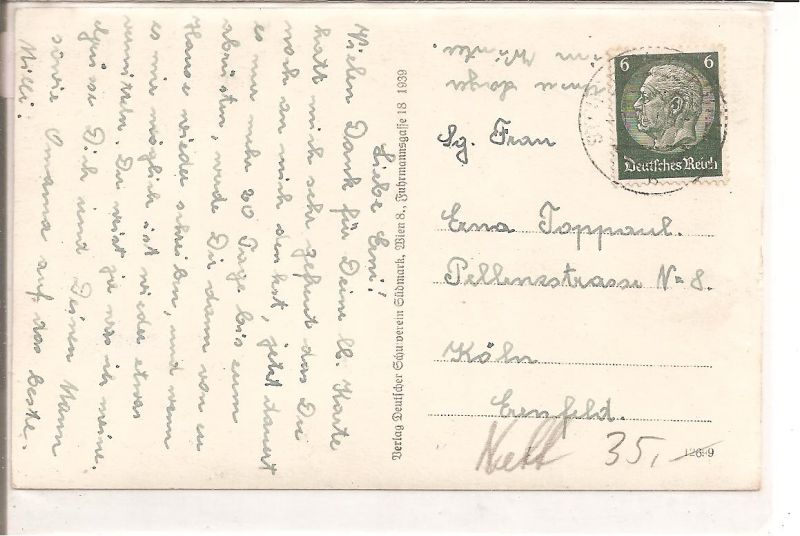 Liebe Erni!
Vielen Dank für Deine lb. Karte
hatt mich sehr gefreut das Du
noch an mich denkst, jetzt dauert
es nur mehr 20 Tage bis zum
abrüsten, werde Dir dann von zu
Hause wieder schreiben, und wenn
es mir möglich ist wieder etwas
vermitteln. Du weist ja was ich meine.
Grüsse Dich und Deinen Mann
sowie Omama auf das beste.
Willi.
Verlag Deutscher Schulverein Südmark, Wien 8., Fuhrmannsgasse 18 1939
im Winter
6 6
Deutsches Reich
Sg. Frau
Erna Toppaul.
Pellenzstrasse N= 8.
Köln
Erenfeld.
Nett 35,-